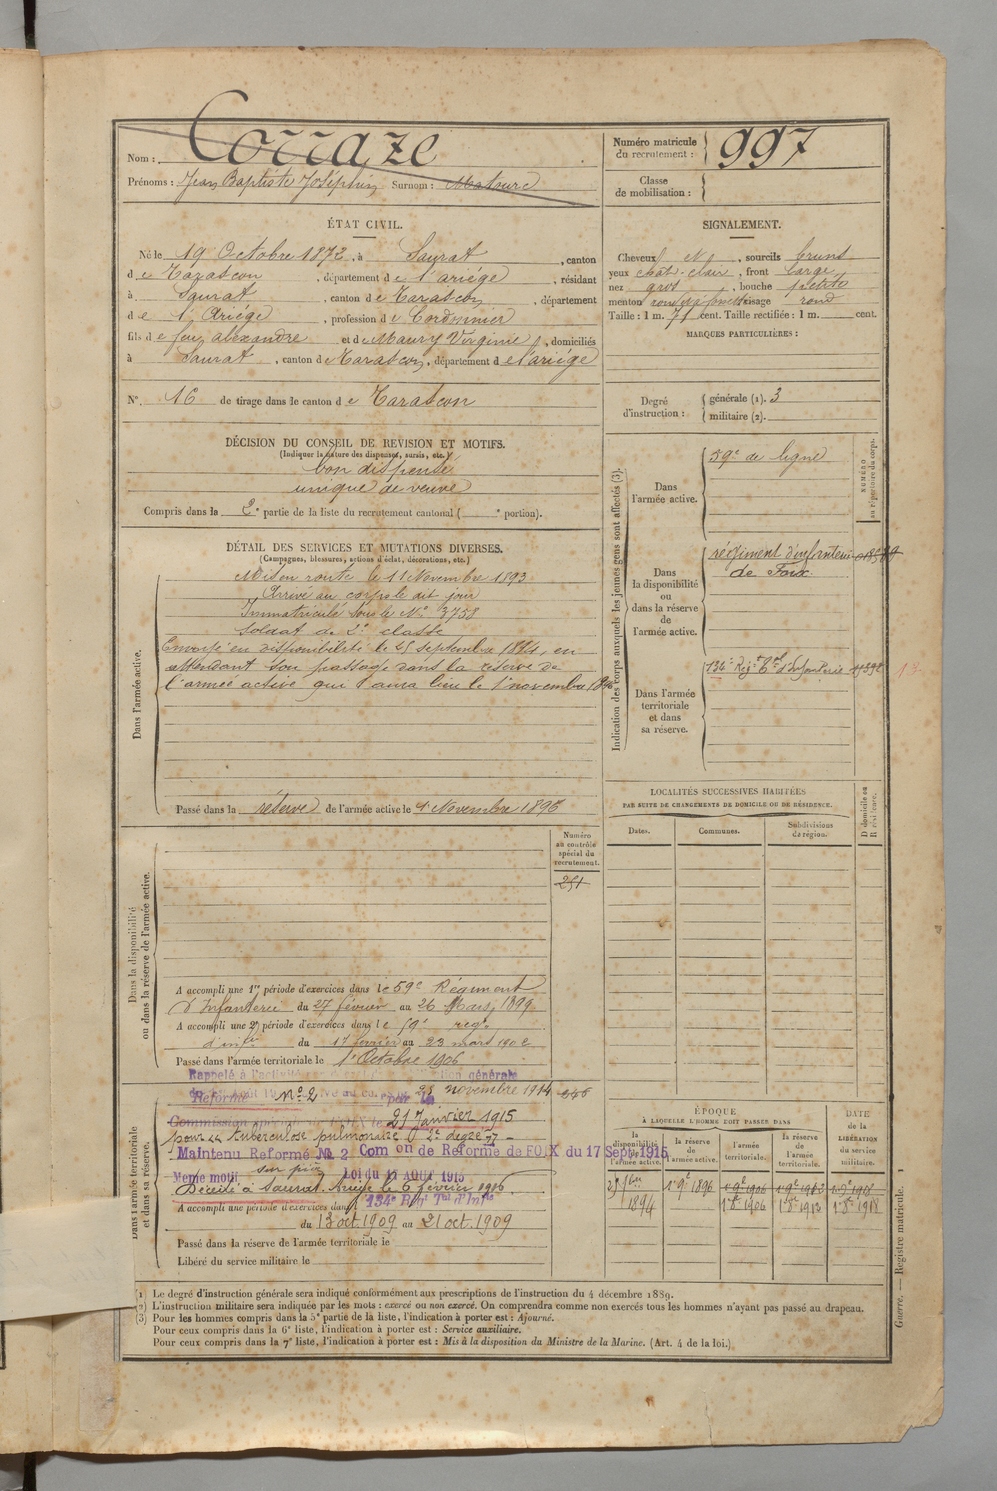 Nom : Corraze
Prénoms : Jean Baptiste Joséphin Surnom :
Numéro matricule du recrutement : 997
Classe de mobilisation :
ÉTAT CIVIL.
Né le 19 Octobre 1872, à Saurat, canton
de Tarascon, département de l'ariége, résidant
à Saurat, canton de Tarascon, département
de l'Ariége, profession de Cordonnier
fils de feu alexandre et de Maury Virginie, domiciliés
à Saurat, canton de Tarascon, département de l'ariége
N° 16 de tirage dans le canton de Tarascon
SIGNALEMENT.
Cheveux N, sourcils bruns
yeux chat. clair, front large
nez gros, bouche petite
menton rond à fossette visage rond
Taille : 1 m. 71 cent. Taille rectifiée : 1 m. cent.
MARQUES PARTICULIÈRES :
Degré d'instruction : générale (1). 3
militaire (2).
DÉCISION DU CONSEIL DE REVISION ET MOTIFS.
(Indiquer la nature des dispenses, sursis, etc.)
bon dispensé
unique de veuve
Compris dans la 2e partie de la liste du recrutement cantonal ( e portion).
DÉTAIL DES SERVICES ET MUTATIONS DIVERSES.
(Campagnes, blessures, actions d'éclat, décorations, etc.)
Dans l'armée active.
Mis en route le 11 Novembre 1893
Arrivé au corps le dit jour
Immatriculé sous le N° 3758
Soldat de 2e classe
Envoyé en disponibilité le 25 septembre 1894, en
attendant son passage dans la réserve de
l'armée active qui aura lieu le 1er novembre 1896
Passé dans la réserve de l'armée active le 1er Novembre 1896
Indication des corps auxquels les jeunes gens sont affectés (3).
NUMÉRO au répertoire du corps.
Dans l'armée active.
59e de ligne
Dans la disponibilité ou dans la réserve de l'armée active.
régiment d'infanterie
de Foix
Dans l'armée territoriale et dans sa réserve.
134e Régt Tal d'Infanterie
LOCALITÉS SUCCESSIVES HABITÉES
PAR SUITE DE CHANGEMENTS DE DOMICILE OU DE RÉSIDENCE.
Dates. Communes. Subdivisions de région. D domicile ou R résidence.
Dans la disponibilité ou dans la réserve de l'armée active.
Numéro au contrôle spécial du recrutement.
251
A accompli une 1re période d'exercices dans le 59e Régiment
d'Infanterie du 27 février au 26 Mars 1899
A accompli une 2e période d'exercices dans le 59e regt
d'infie du 17 février au 23 mars 1902
Passé dans l'armée territoriale le 1er Octobre 1906
Dans l'armée territoriale et dans sa réserve.
Rappelé à l'activité générale
Réformé N° 2 23 novembre 1914
Commission 21 Janvier 1915
pour tuberculose pulmonaire 2e degré
Maintenu Reformé No 2 Com on de Reforme de FOIX du 17 Sept 1915
Meme motif Loi du 17 AOUT 1915
Décédé à Saurat Ariège le 6 février 1916
134e Rgt Tal d'Infie
A accompli une période d'exercices dans
du 13 oct. 1909 au 21 oct. 1909
Passé dans la réserve de l'armée territoriale le
Libéré du service militaire le
ÉPOQUE
À LAQUELLE L'HOMME DOIT PASSER DANS
la disponibilité de l'armée active. la réserve de l'armée active. l'armée territoriale. la réserve de l'armée territoriale.
DATE de la LIBÉRATION du service militaire.
25 7bre 1894 1er 9e 1896 1er 9e 1906 1er 9e 1912 1er 9e 1918
1er 8e 1906 1er 8e 1912 1er 8e 1918
(1) Le degré d'instruction générale sera indiqué conformément aux prescriptions de l'instruction du 4 décembre 1889.
(2) L'instruction militaire sera indiquée par les mots : exercé ou non exercé. On comprendra comme non exercés tous les hommes n'ayant pas passé au drapeau.
(3) Pour les hommes compris dans la 5e partie de la liste, l'indication à porter est : Ajourné.
Pour ceux compris dans la 6e liste, l'indication à porter est : Service auxiliaire.
Pour ceux compris dans la 7e liste, l'indication à porter est : Mis à la disposition du Ministre de la Marine. (Art. 4 de la loi.)
Guerre. — Registre matricule. 1